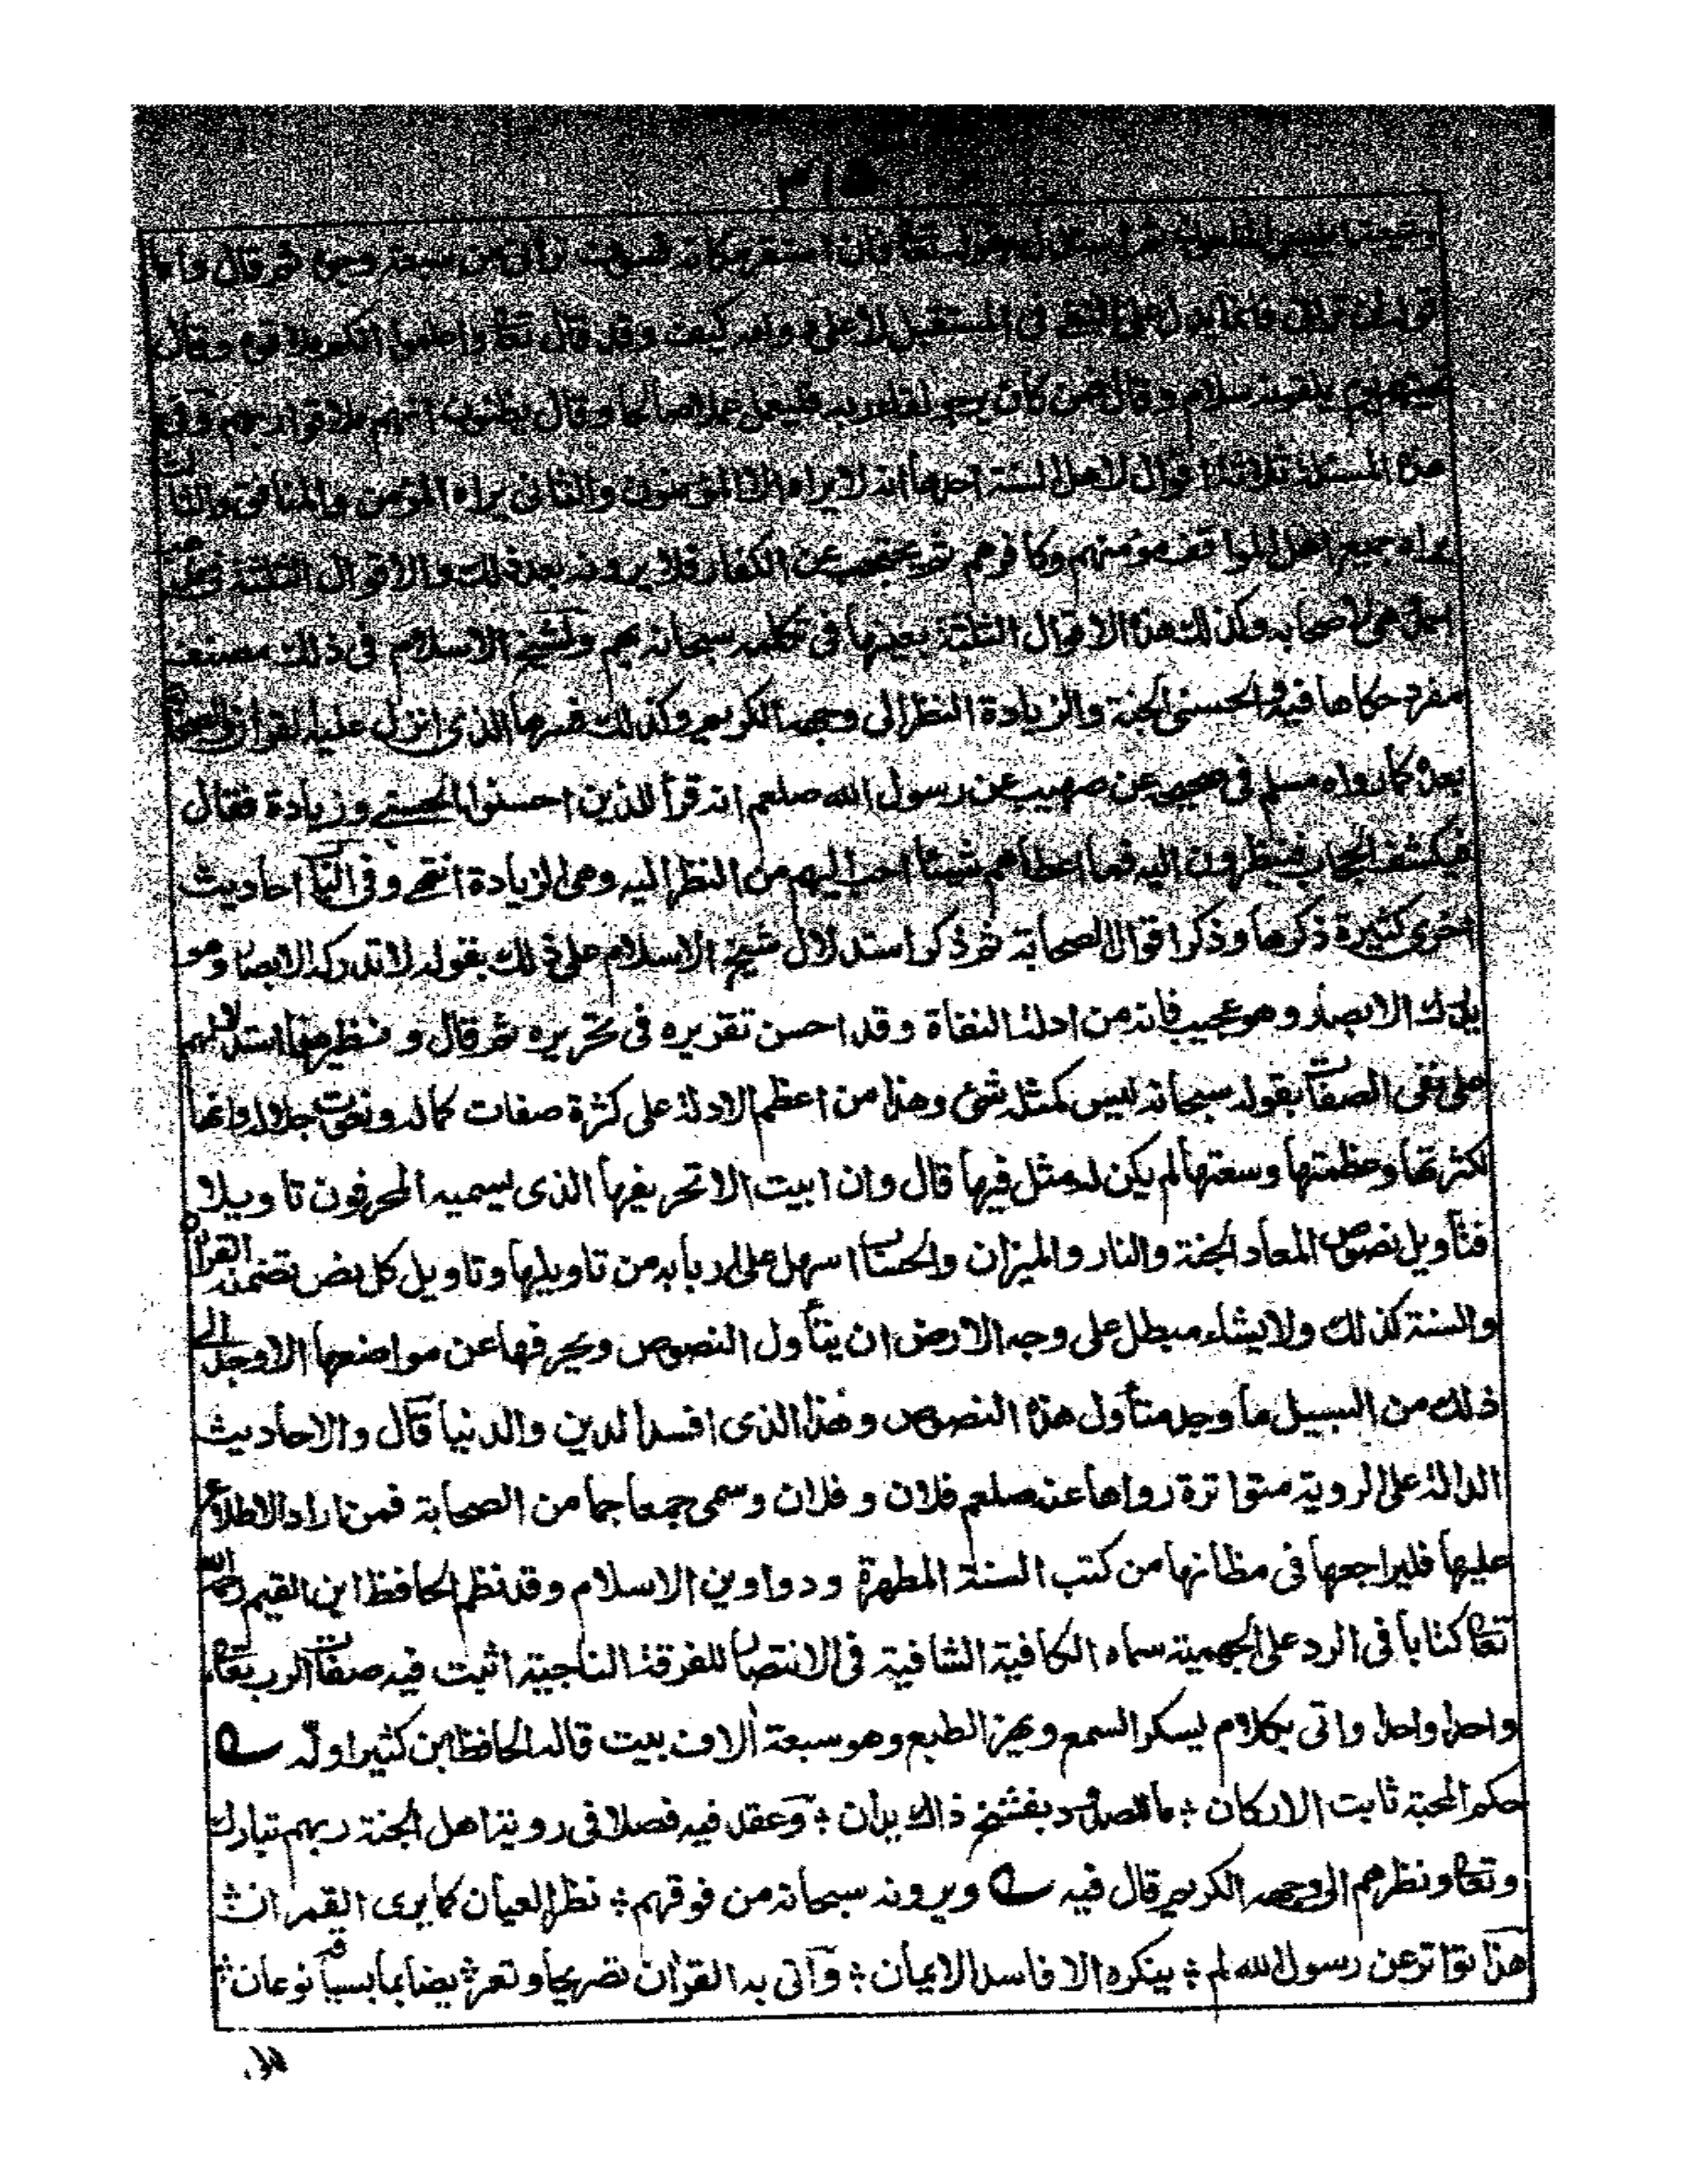 ٣١٥
ثم استدل بقوله تعالى فان استقر مكانه فسوف ترانى من سبعة وجوه ثم قال واما
قوله لن ترانى فانما يدل على النفى فى المستقبل لا على وقد قال تعالى واعلموا انكم ملاقوه وقال
تحيتهم يوم يلقونه سلام وقال فمن كان يرجو لقاء ربه فليعمل عملا صالحا وقال يظنون انهم ملاقوا ربهم وفى
هذه المسئلة ثلاثة اقوال لاهل السنة احدها انه لا يراه الا المؤمنون والثانى يراه المؤمن والمنافق والثالث
يراه جميع اهل المواقف مؤمنهم وكافرهم ثم يحتجب عن الكفار فلا يرونه بعد ذلك والاقوال الثلثة فى مذهب
احمد هى لاصحابه وكذلك هذه الاقوال الثلثة بعينها فى تكليمه سبحانه بهم ولشيخ الاسلام فى ذلك مصنف
مفرد حكاها فيه والحسنى الجنة والزيادة النظر الى وجهه الكريم وكذلك فسرها الذى انزل عليه القرآن والصحابة
بعده كما رواه مسلم فى صحيحه عن صهيب عن رسول الله صلعم انه قرأ للذين احسنوا الحسنى وزيادة فقال
فيكشف الحجاب فينظرون اليه فما اعطاهم شيئا احب اليهم من النظر اليه وهى الزيادة انتهى وفى الباب احاديث
اخرى كثيرة ذكرها وذكر اقوال الصحابة ثم ذكر استدلال شيخ الاسلام على ذلك بقوله لا تدركه الابصار وهو
يدرك الابصار وهو عجيب فانه من ادلة النفاة وقد احسن تقريره فى تحريره ثم قال ونظيرهذا استدلالهم
على نفى الصفات بقوله سبحانه ليس كمثله شئ وهذا من اعظم الادلة على كثرة صفات كماله ونعوت جلاله وانها
لكثرتها وعظمتها وسعتها لم يكن له مثل فيها قال وان ابيت الا تحريفها الذى يسميه المحرفون تاويلا
فتأويل نصوص المعاد الجنة والنار والميزان والحساب اسهل على اربابه من تاويلها وتاويل كل نص تضمنه القرآن
والسنة كذلك ولا يشاء مبطل على وجه الارض ان يتأول النصوص ويحرفها عن مواضعها الا وجد الى
ذلك من السبيل ما وجد متأول هذه النصوص وهذا الذى افسد الدين والدنيا قال والاحاديث
الدالة على الروية متواترة رواها عنه صلعم فلان وفلان وسمى جمعا جما من الصحابة فمن اراد الاطلاع
عليها فليراجعها فى مظانها من كتب السنة المطهرة ودواوين الاسلام وقد نظم الحافظ ابن القيم رحمه الله
تعالى كتابا فى الرد على الجهمية سماه الكافية الشافية فى الانتصار للفرقة الناجية اثبت فيه صفات الرب تعالى
واحدا واحدا واتى بكلام يسكر السمع ويهز الطبع وهو سبعة آلاف بيت قاله الحافظ ابن كثير اوله
حكم المحبة ثابت الاركان ؞ ما للصدود بفسخ ذاك يدان ؞ وعقد فيه فصلا فى روية اهل الجنة ربهم تبارك
وتعالى ونظرهم الى وجهه الكريم قال فيه ويرونه سبحانه من فوقهم ؞ نظر العيان كما يرى القمران ؞
هذا تواتر عن رسول الله لم ؞ ينكره الا فاسد الايمان ؞ وآتى به القرآن تصريحا وتعريضا بما بسياقه نوعان ؞